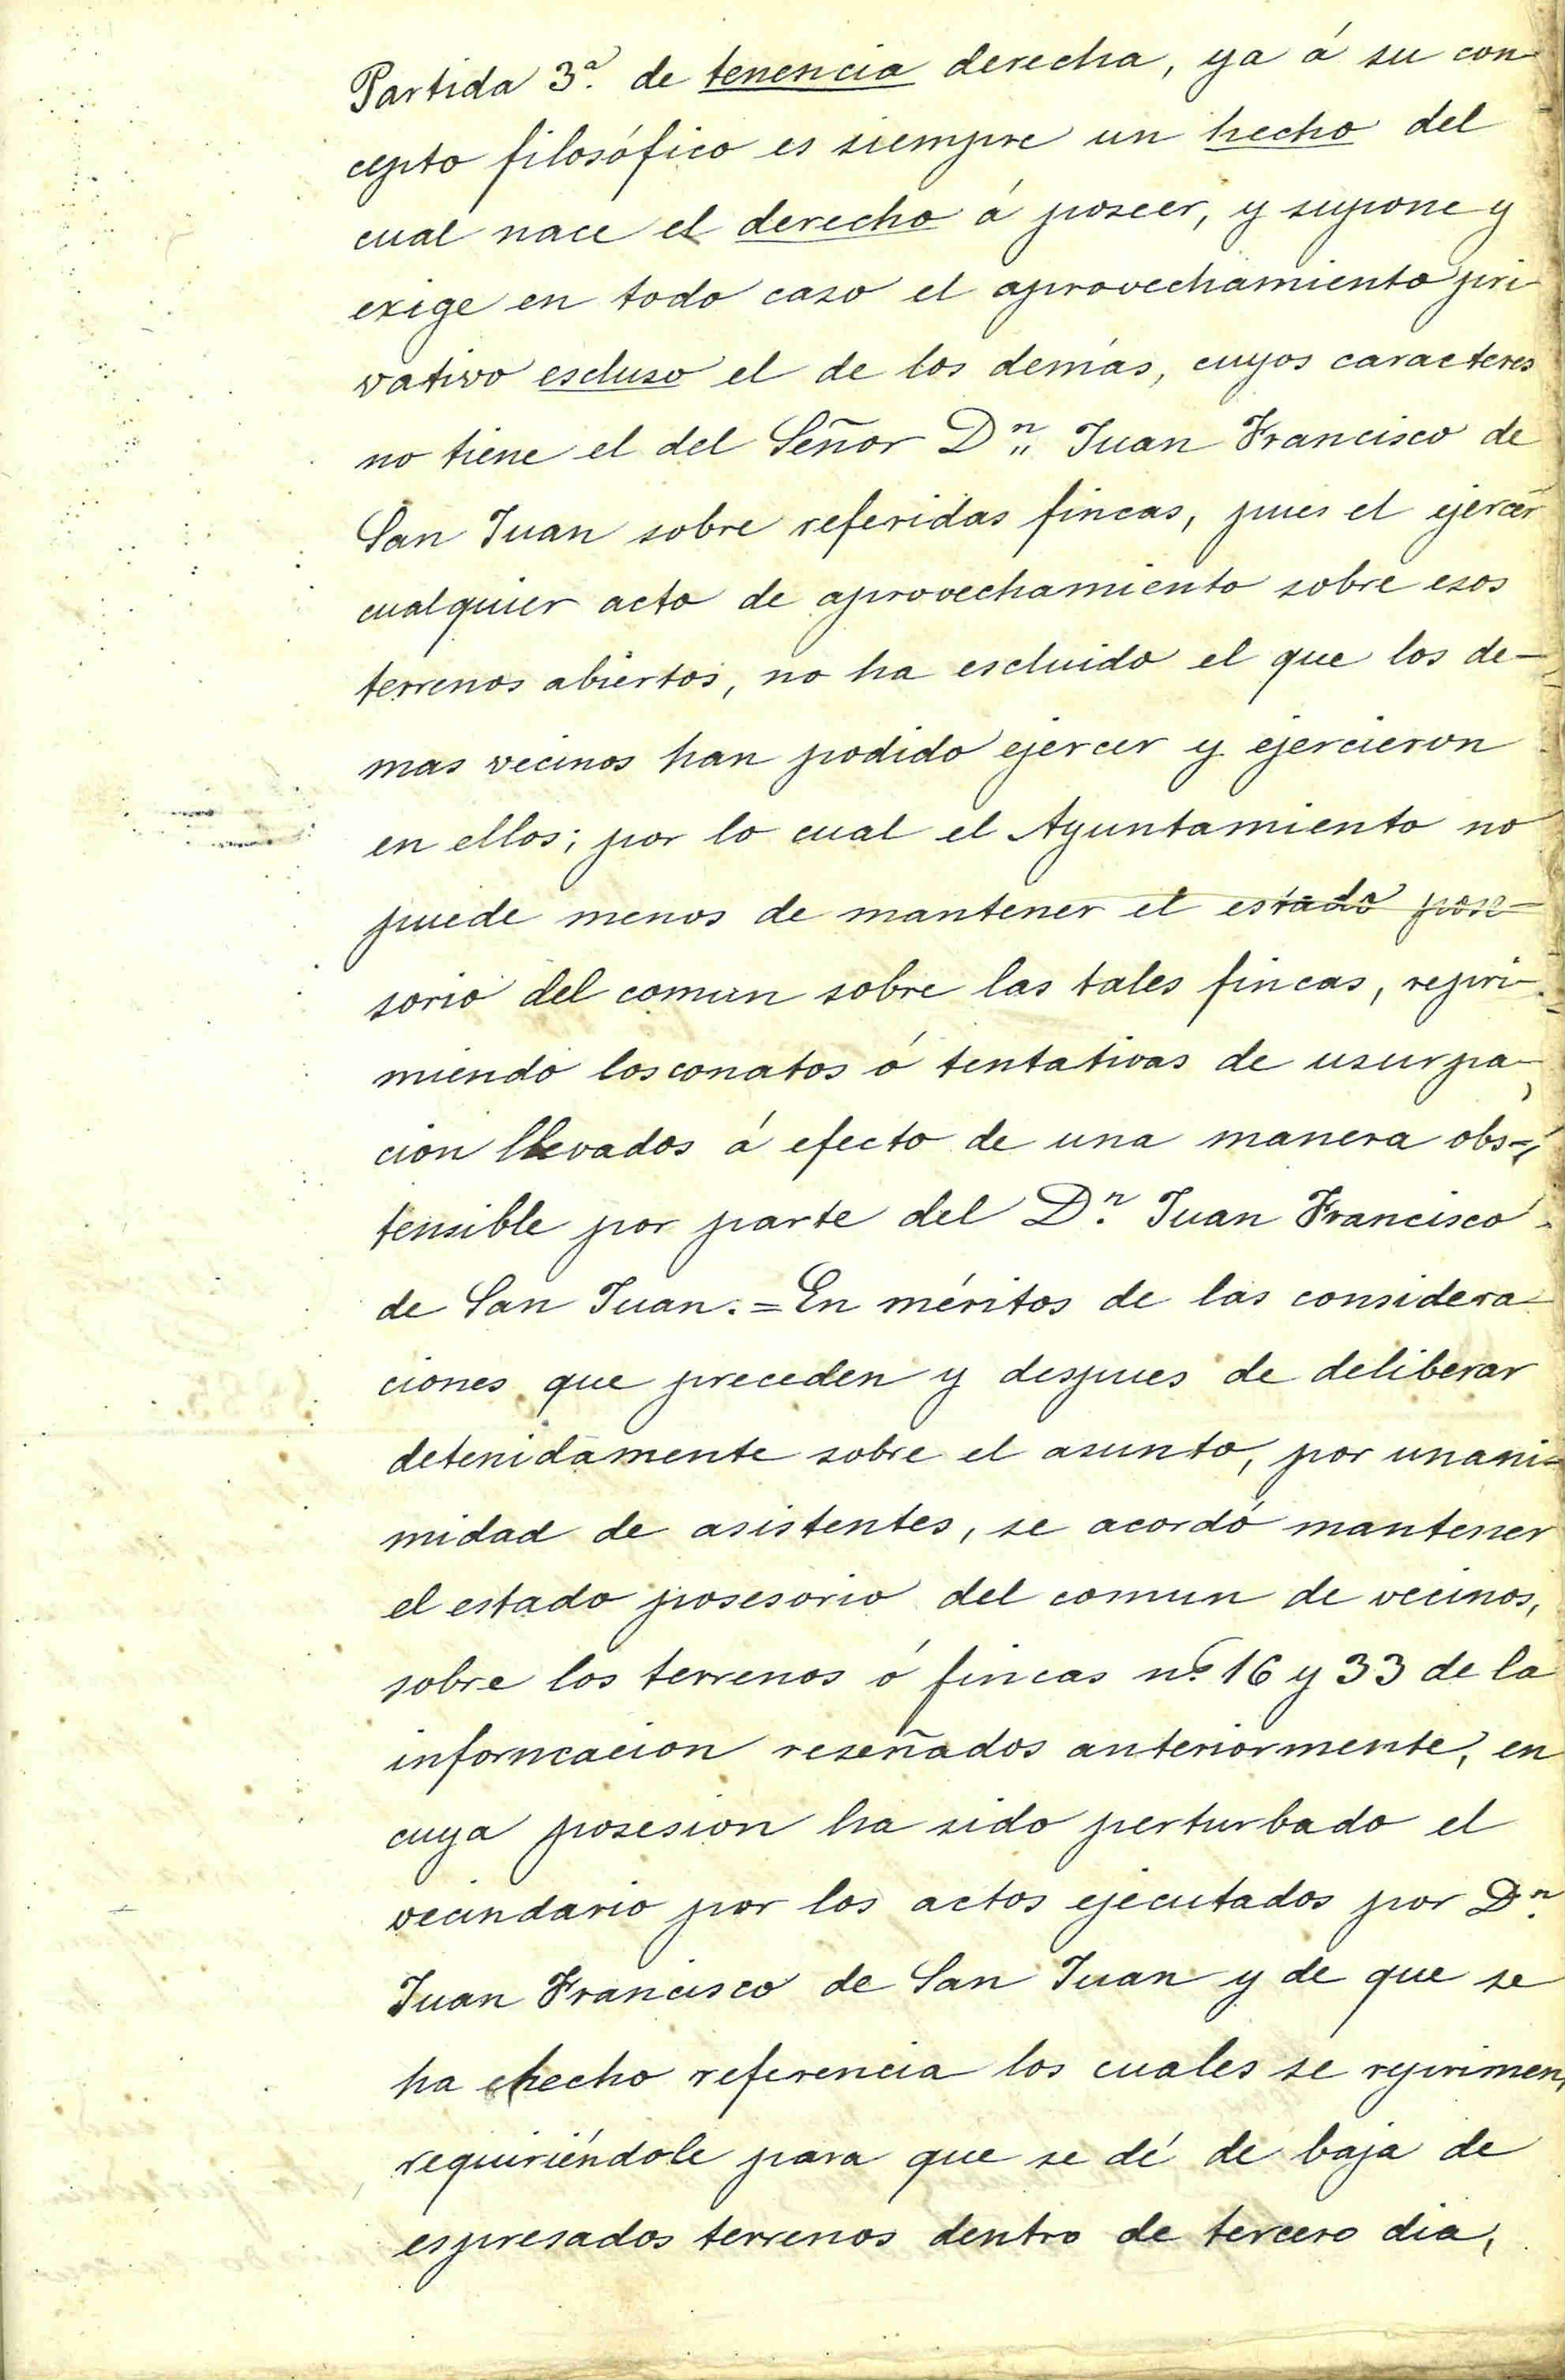 Partida 3ª de tenencia derecha, ya á su con-
cepto filosófico es siempre un hecho del
cual nace el derecho á poseer, y supone y
exige en todo caso el aprovechamiento pri-
vativo escluso el de los demás, cuyos caracteres
no tiene el del Señor Dⁿ Juan Francisco de
San Juan sobre referidas fincas, pues el ejercer
cualquier acto de aprovechamiento sobre esos
terrenos abiertos, no ha escluido el que los de-
mas vecinos han podido ejercer y ejercieron
en ellos; por lo cual el Ayuntamiento no
puede menos de mantener el estado pose-
sorio del comun sobre las tales fincas, repri-
miendo los conatos ó tentativas de usurpa-
cion llevados á efecto de una manera obs-
tensible por parte del Dⁿ Juan Francisco
de San Juan. = En méritos de las considera-
ciones que preceden y despues de deliberar
detenidamente sobre el asunto, por unani-
midad de asistentes, se acordó mantener
el estado posesorio del comun de vecinos,
sobre los terrenos ó fincas nº 16 y 33 de la
informacion reseñados anteriormente, en
cuya posesion ha sido perturbado el
vecindario por los actos ejecutados por Dⁿ
Juan Francisco de San Juan y de que se
ha hecho referencia los cuales se reprimen,
requiriéndole para que se dé de baja de
espresados terrenos dentro de tercero dia,